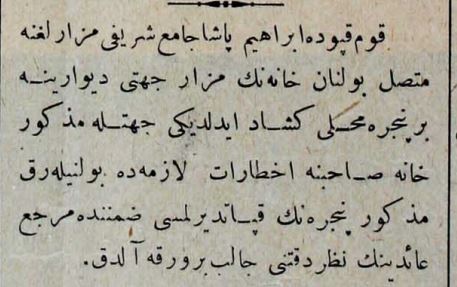 قوم قپوده ابراهيم پاشا جامع شريفى مزارلغنه
متصل بولنان خانه‌نك مزار جهتى ديوارينـه
بر پنجره محلى كشاد ايدلديكى جهتـله مذكور
خانه صـاحبنه اخطارات لازمه‌ده بولنيله‌رق
مذكور پنجره‌نك قپـاتديرلمسى ضمننده مرجع
عائدينك نظر دقتنى جالب بر ورقه آلدق.